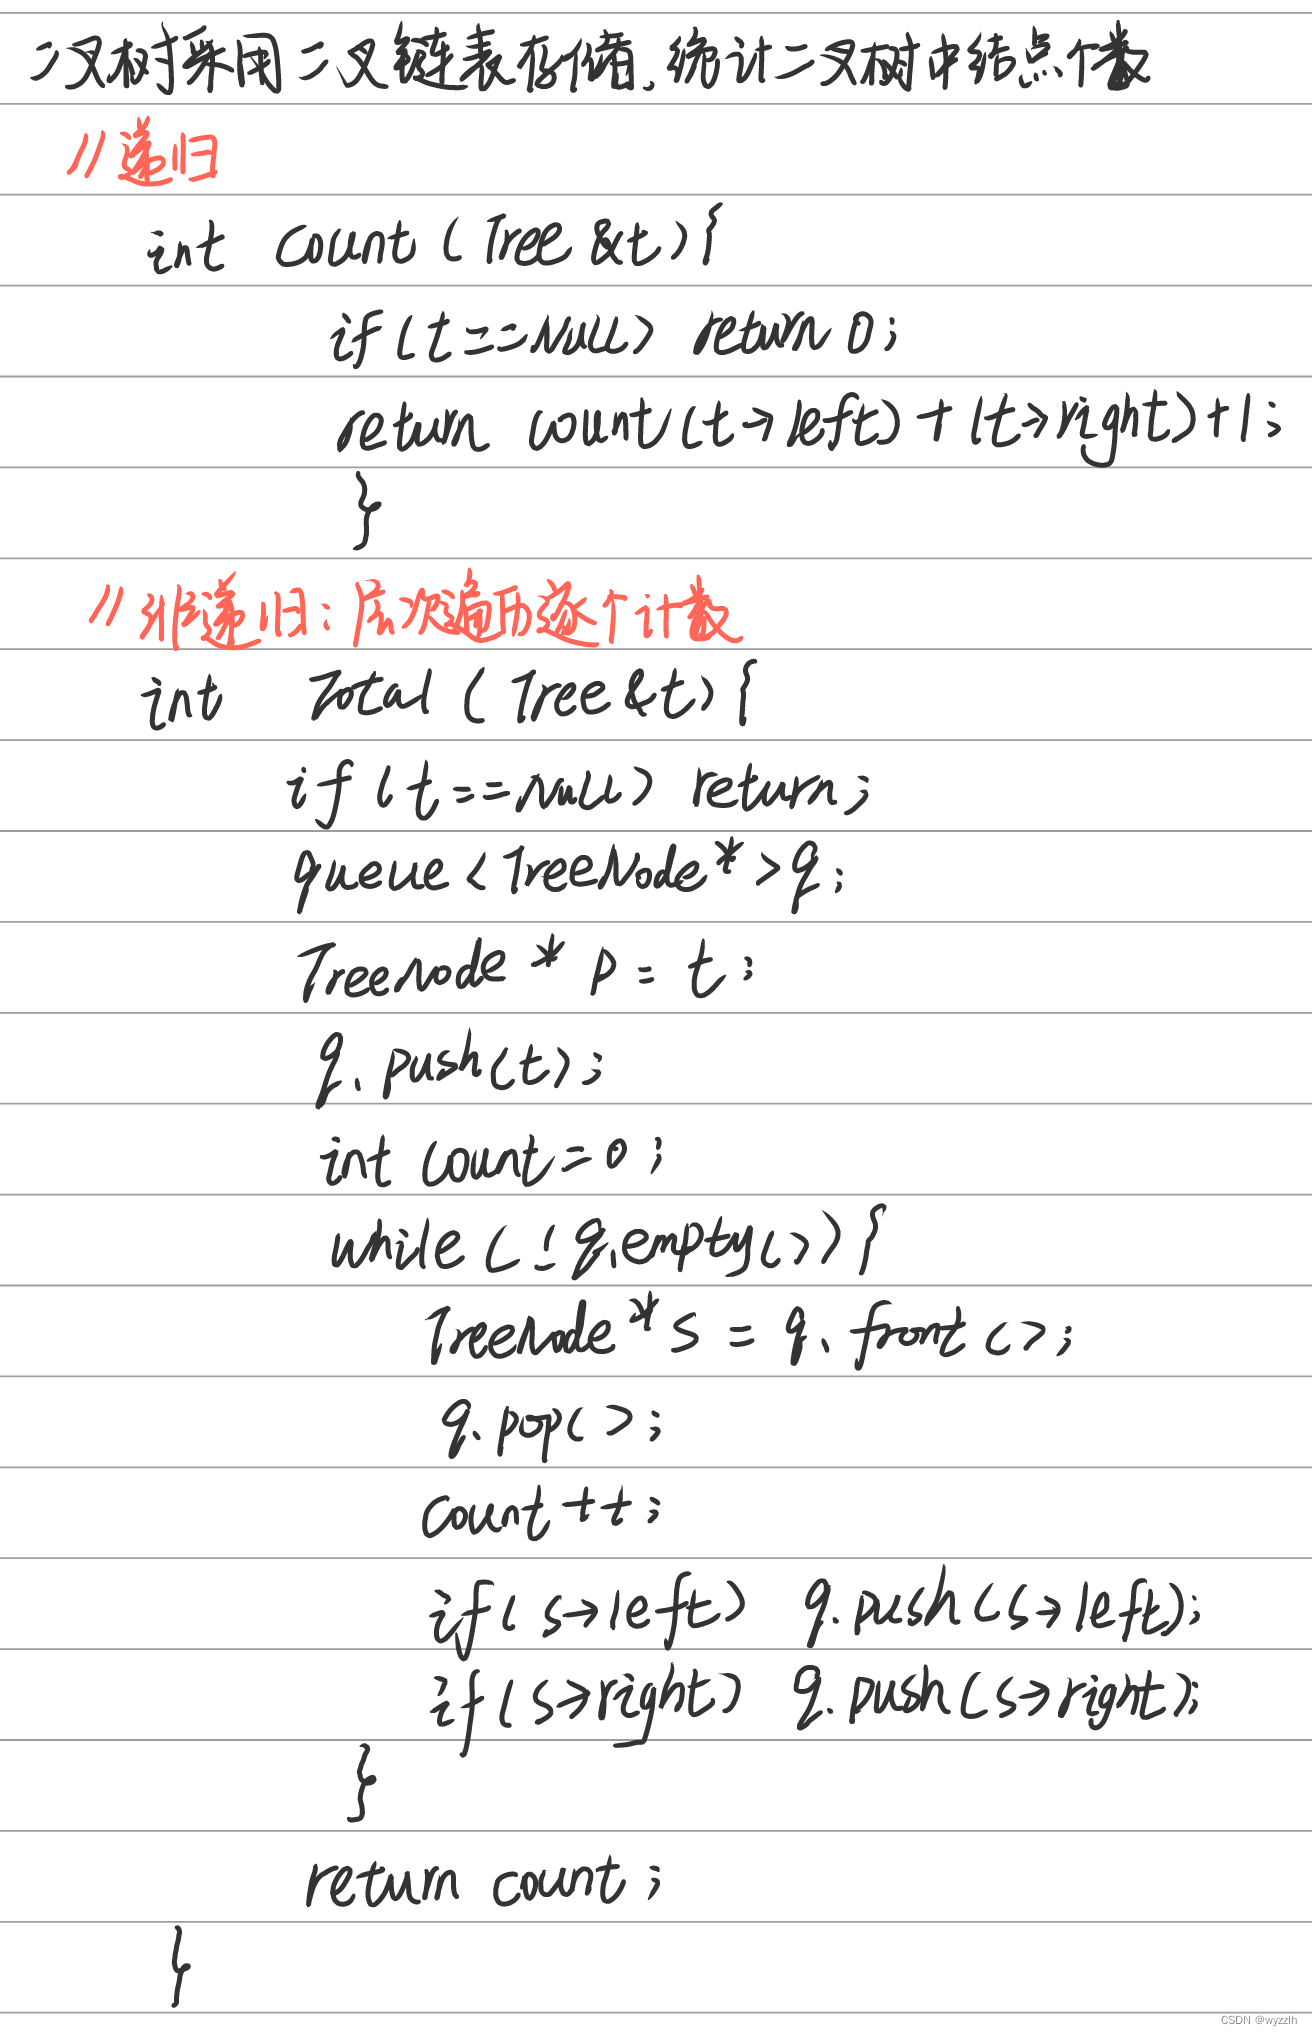 二叉树采用二叉链表存储,统计二叉树中结点个数
//递归
int Count(Tree &t){
if(t==Null) return 0;
return count(t→left)+(t→right)+1;
}
//非递归:层次遍历逐个计数
int Total(Tree &t){
if(t==Null) return;
queue<TreeNode*>q;
TreeNode* p=t;
q.push(t);
int count=0;
while(!q.empty()){
TreeNode*s=q.front();
q.pop();
count++;
if(s→left) q.push(s→left);
if(s→right) q.push(s→right);
}
return count;
}
CSDN @wyzzlh